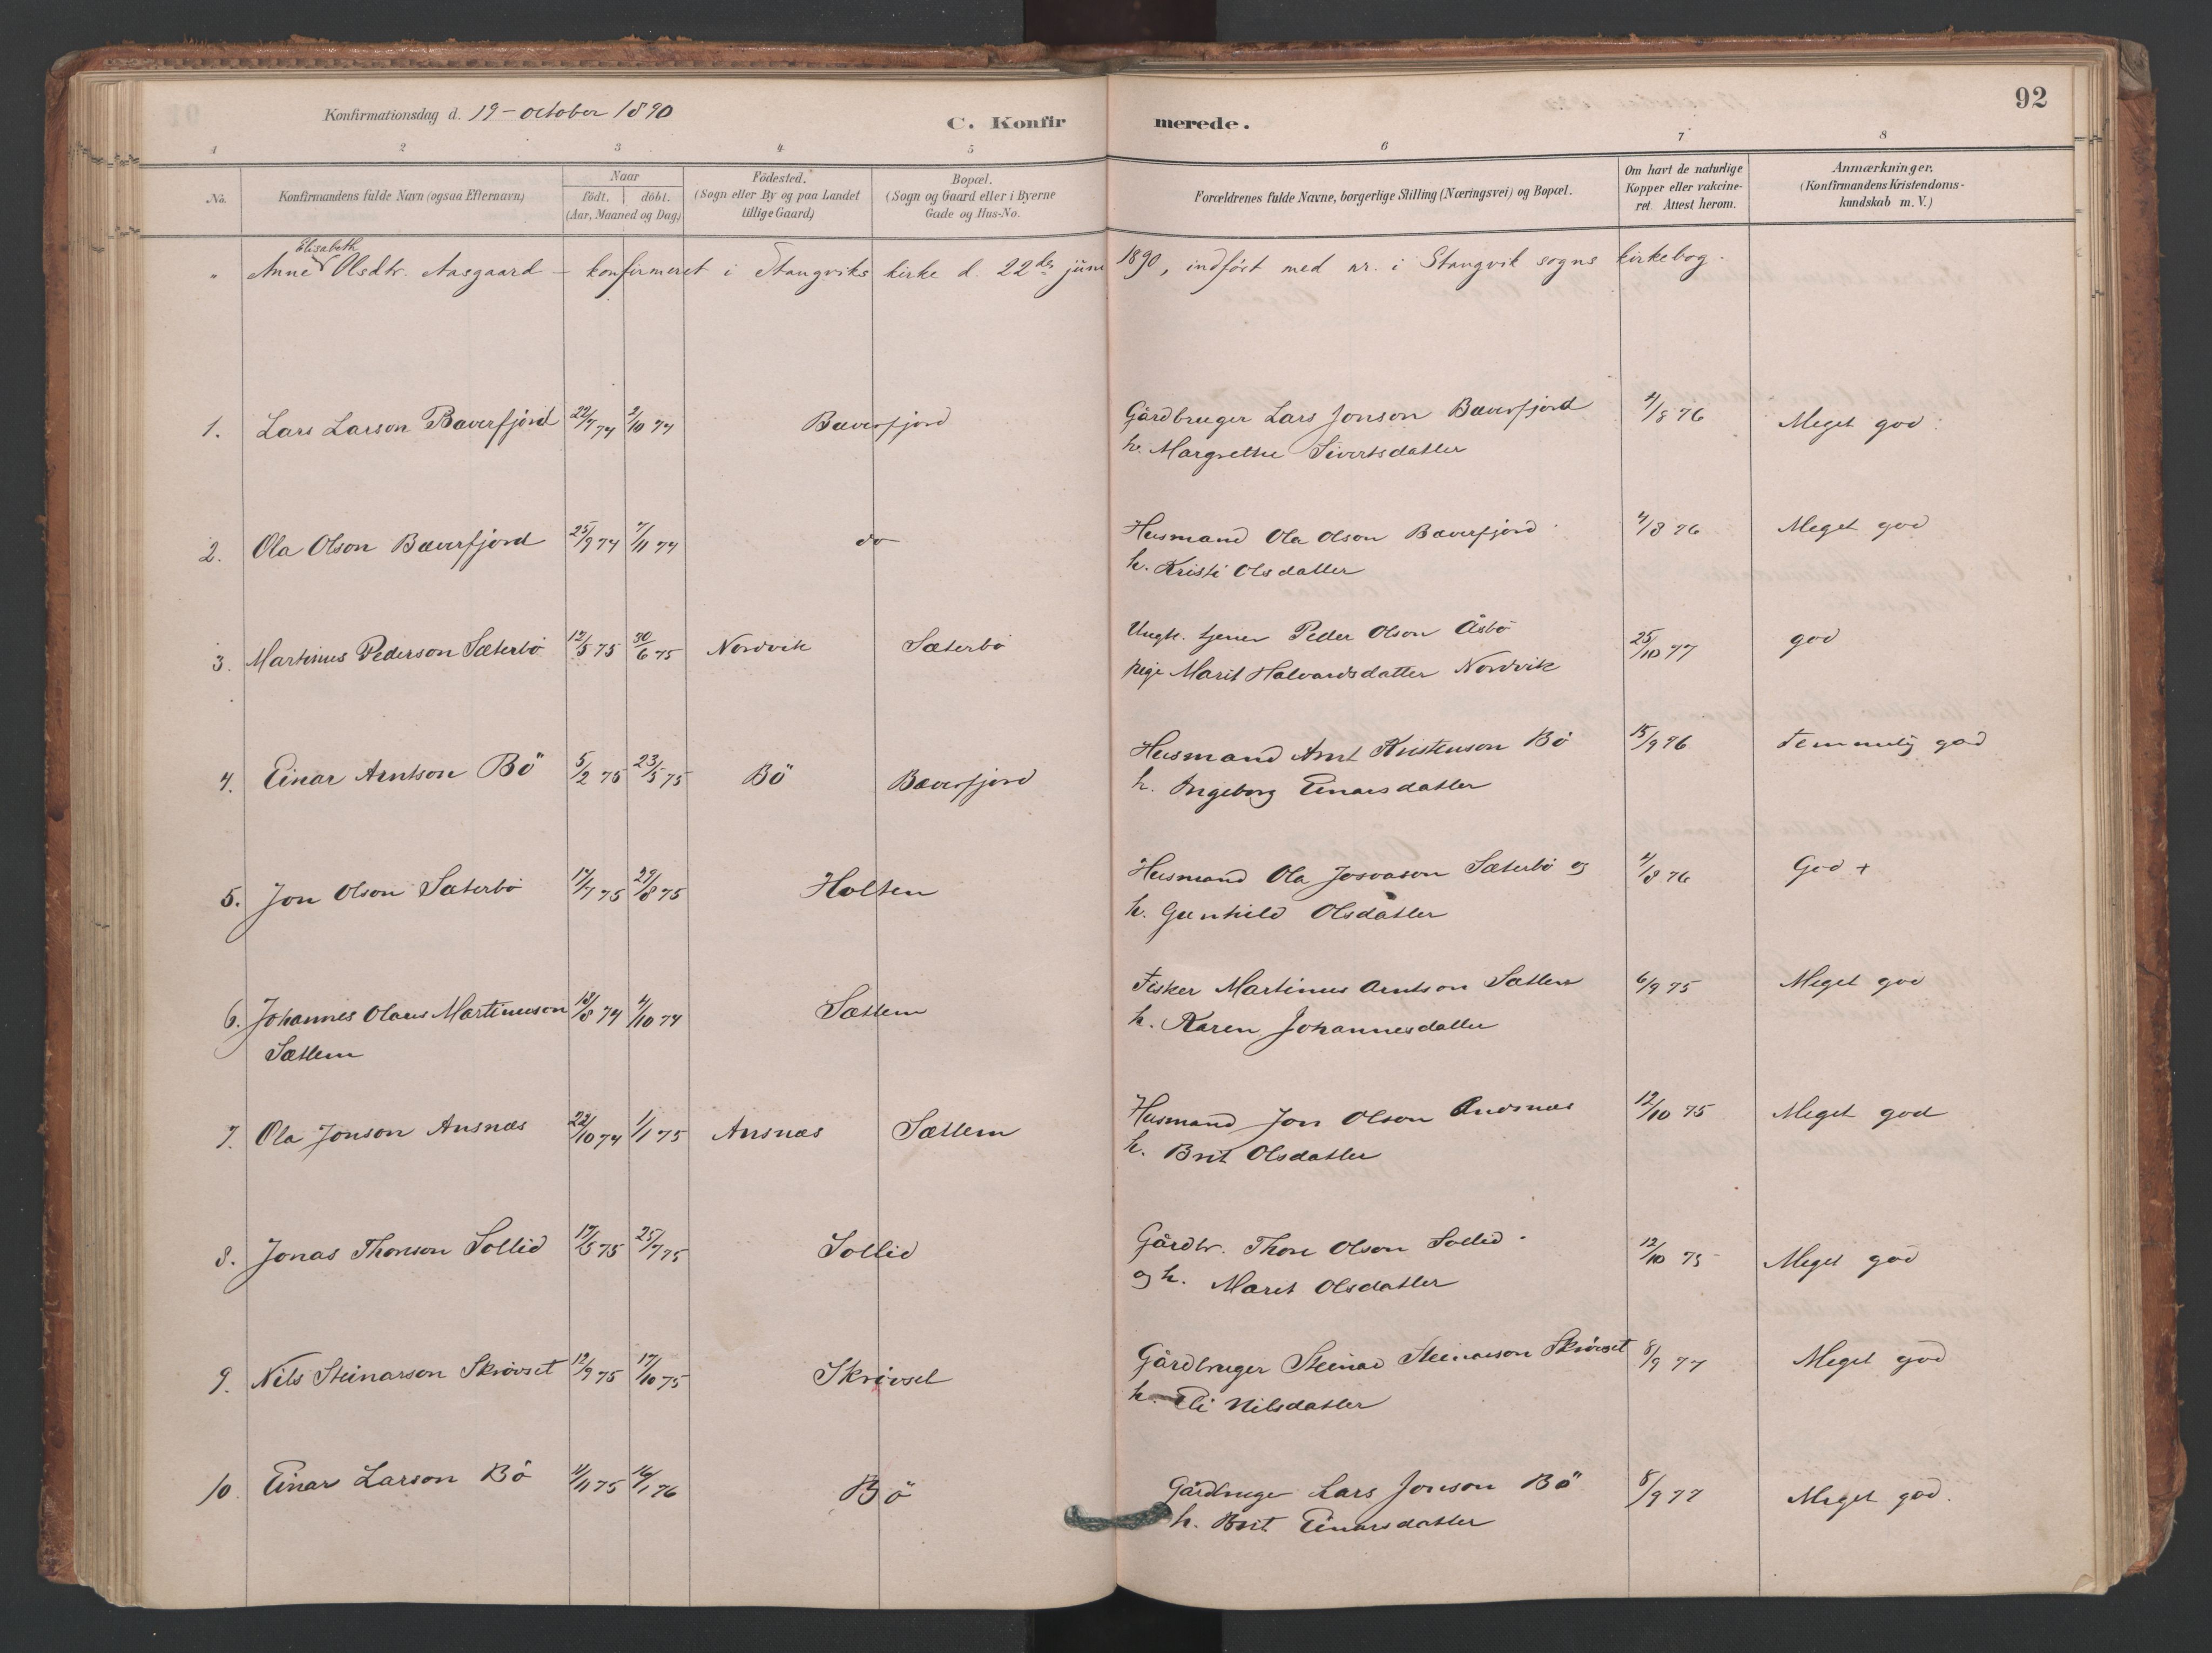 92
Konfirmationsdag d. 19 - october 1890
C. Konfirmerede.
1 2 3 4 5 6 7 8
No. Konfirmandens fulde Navn (ogsaa Efternavn) Naar födt. döbt. (Aar, Maaned og Dag) Födested. (Sogn eller By og paa Landet tillige Gaard) Bopæl. (Sogn og Gaard eller i Byerne Gade og Hus-No. Forældrenes fulde Navne, borgerlige Stilling (Næringsvei) og Bopæl. Om havt de naturlige Kopper eller vakcineret. Attest herom. Anmærkninger. (Konfirmandens Kristendomskundskab m. V.)
" Anne Elisabeth Olsdtr. Aasgaard - konfirmeret i Stangviks kirke d. 22de juni 1890, indført med nr. i Stangvik sogns kirkebog.
1. Lars Larson Bæverfjord 22/7 74 2/10 74 Bæverfjord Gårdbruger Lars Jonson Bæverfjord 4/8 76 Meget god.
h. Margrethe Sivertsdatter
2. Ola Olson Bæverfjord 25/9 74 7/11 74 do Husmand Ola Olson Bæverfjord 4/8 76 Meget god
h. Kristi Olsdatter
3. Martinus Pederson Sæterbö 12/5 75 30/6 75 Nordvik Sæterbö Ungk. tjener Peder Olson Åsbö 25/10 77 god
pige Marit Halvardsdatter Nordvik
4. Einar Arntson Bö 5/2 75 23/5 75 Bö Bæverfjord Husmand Arnt Kristenson Bö 15/9 76 Temmelig god
h. Ingeborg Einarsdatter
5. Jon Olson Sæterbö 17/7 75 29/8 75 Holten Husmand Ola Josvason Sæterbö og 4/8 76 God +
h. Gunhild Olsdatter
6. Johannes Olaus Martinuson 18/8 74 4/10 74 Sættem Fisker Martinus Arntson Sættem 6/9 75 Meget god
Sættem h. Karen Johannesdatter
7. Ola Jonson Ansnæs 22/10 74 1/1 75 Ansnæs Sættem Husmand Jon Olson Andsnæs 12/10 75 Meget god
h. Brit Olsdatter
8. Jonas Thoreson Sollid 17/5 75 25/7 75 Sollid Gårdbr. Thore Olson Sollid. 12/10 75 Meget god
og h. Marit Olsdatter
9. Nils Steinarson Skrövset 12/9 75 17/10 75 Skrövset Gårdbruger Steinar Steinarson Skrövset 8/9 77 Meget god
h. Eli Nilsdatter
10 Einar Larson Bö 4/11 75 16/1 76 Bö Gårdbruger Lars Jonson Bö 8/9 77 Meget god.
h. Brit Einarsdatter